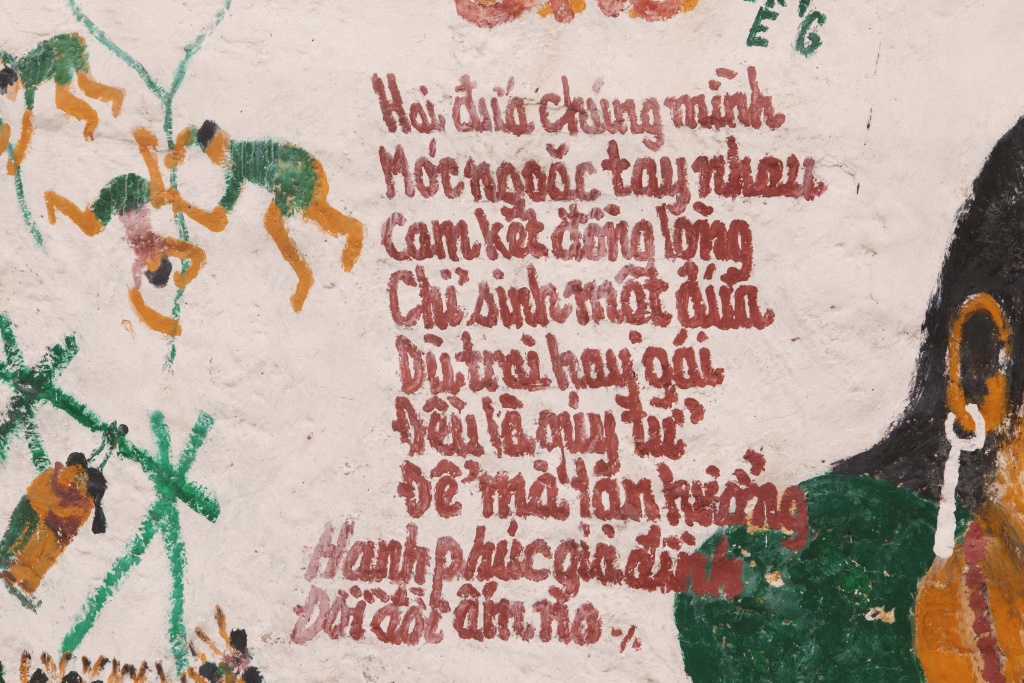 E G
Hai đứa chúng mình
Móc ngoặc tay nhau
Cam kết đồng lòng
Chỉ sinh một đứa
Dù trai hay gái
Đều là qúy tử
Để mà tận hưởng
Hạnh phúc gia đình
Đời đời ấm no